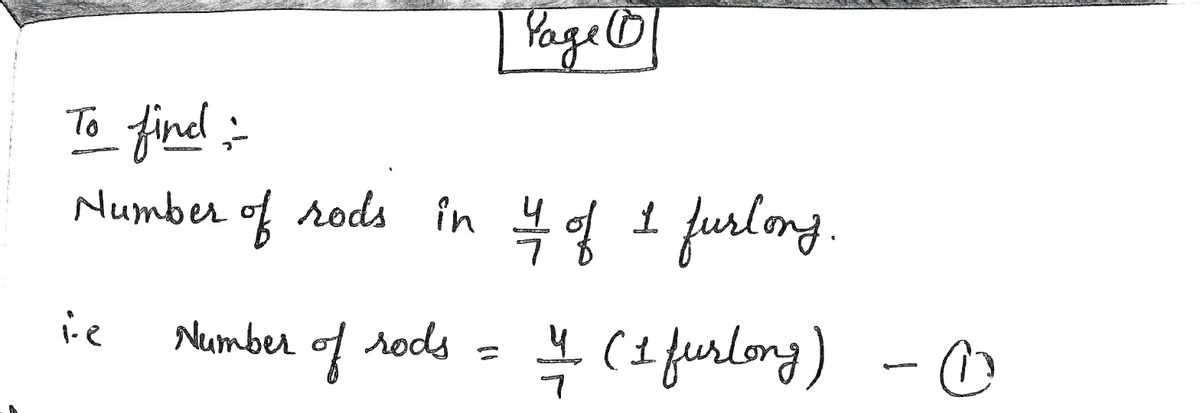 Page ①
To find :-
Number of rods in 4/7 of 1 furlong.
i.e Number of rods = 4/7 (1 furlong) - ①